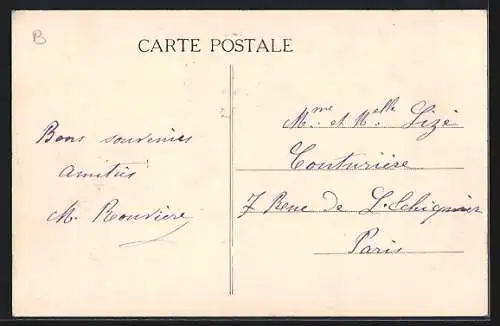 B
CARTE POSTALE
Bons souvenirs
Amitiés
M. Rouvière
Mme et Melle Lizé
Couturière
7 Rue de L'Echiquier
Paris